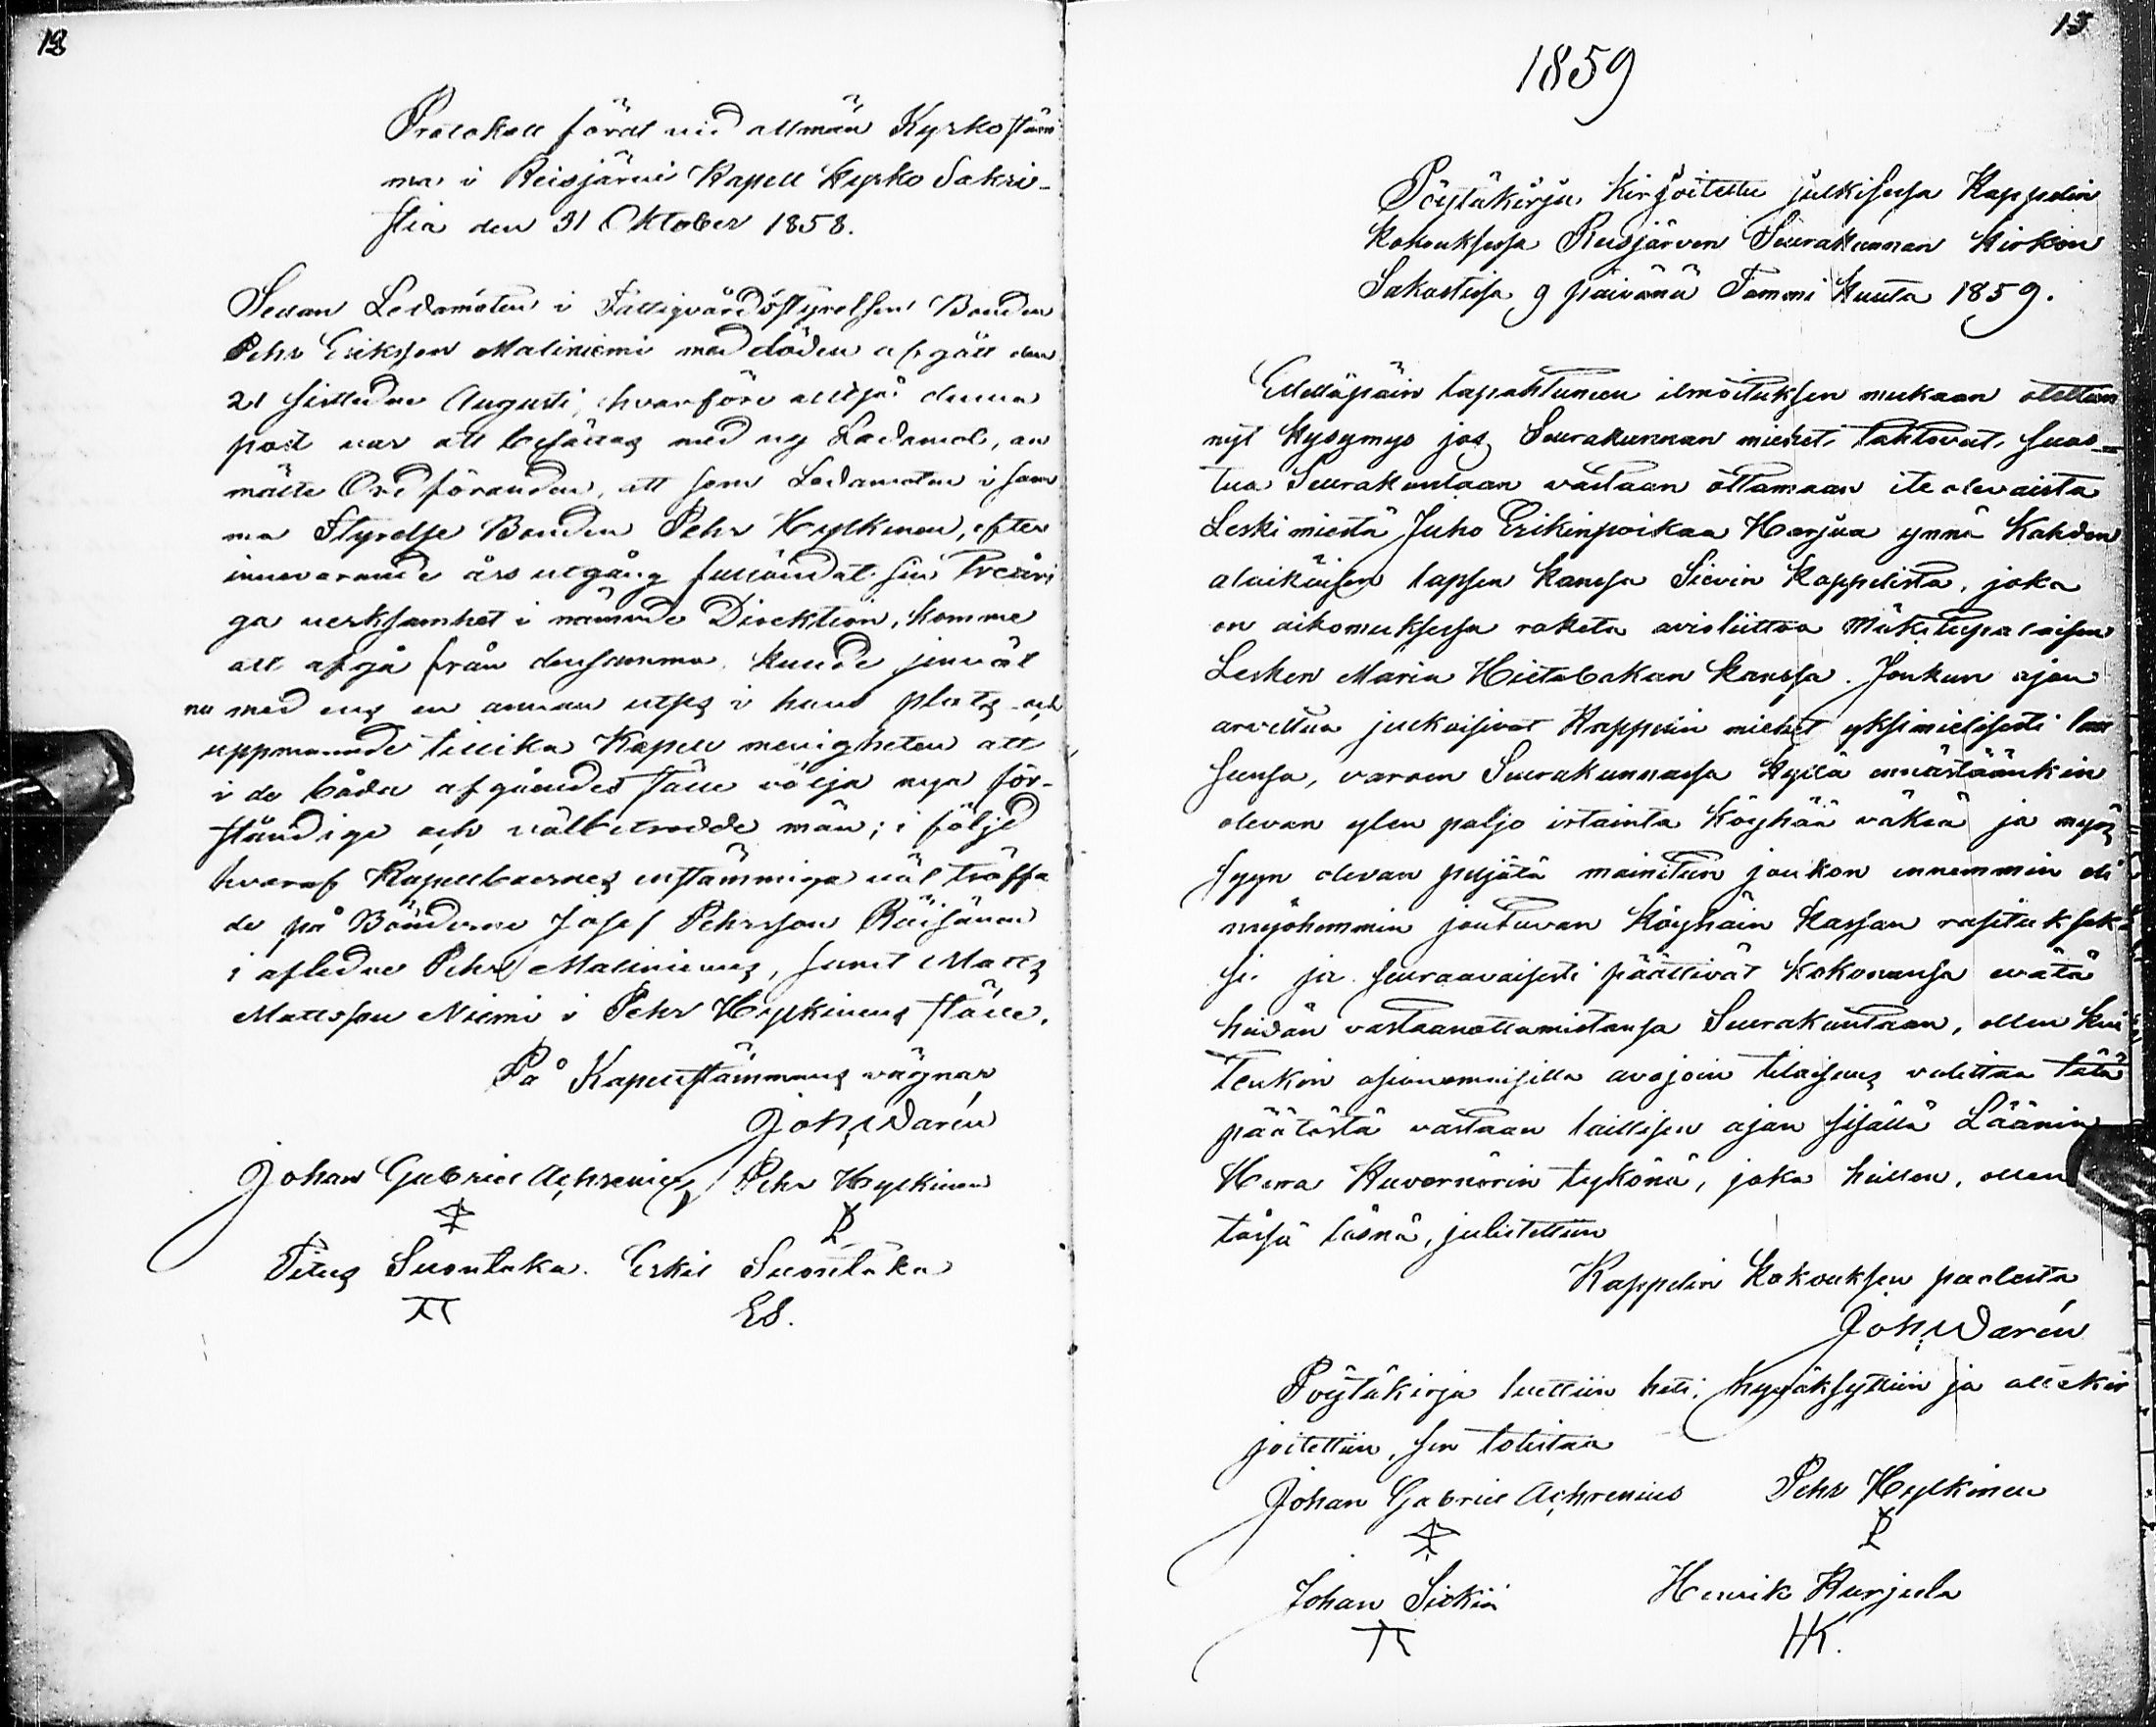 12
Protokoll fördt vid allmän Kyrkostäm
ma i Reisjärvi Kapell Kyrko Sakri-
stia den 31 Oktober 1858.
Sedan Ledamoten i Fattigvårdsstyrelsen Bonden
Pehr Eriksson Maliniemi med döden afgått den
21 sistledne Augusti, hvarföre alltså denna
post var att besättas med ny Ledamot, an
mälte Ordföranden, att som Ledamoten i sam
ma Styrelse Bonden Pehr Hylkinen, efter
innevarande års utgång fulländat sin treåri
ga verksamhet i nämnde Direktion, komme
att afgå från densamma, kunde jemväl
nu med ens en annan utses i hans plats och
uppmanade tillika Kapell menigheten att
i de båda afgåendes ställe välja nya för-
ståndige och välbetrodde män; i följd
hvaraf Kapellboernes enstämmiga val träffa
de på Bönderne Josef Pehrsson Räisänen
i afledne Pehr Maliniemis, samt Matts
Mattsson Niemi i Pehr Hylkinens ställe.
På Kapellstämmans vägnar
Joh. Warén
Johan Gabriel Achrenius Pehr Hylkinen
Titus Suontaka. Erkil Suontaka
ES.
13
1859
Pöytäkirja, Kirjoitettu julkisessa Kappelin
Kokouksessa Reisjärven Seurakunnan Kirkon
Sakastissa 9 päivänä Tammi Kuuta 1859.
Edelläpäin tapahtuneen ilmoituksen mukaan otettiin
nyt Kysymys jos Seurakunnan miehet tahtovat suos-
tua Seurakuntaan vastaan ottamaan iteolevaista
Leski miestä Juho Erikinpoikaa Harjua ynnä Kahden
alaikäisen lapsen kanssa Sievin Kappelista, joka
on aikomuksessa raketa avioliittoa Mäkitupalaisen
Lesken Maria Hietabakan kanssa. Jonkun ajan
arveltua julkaisivat Kappelin miehet yksimielisesti lau
sunsa, varaen Seurakunnassa Kyllä ennästäänkin
olevan ylen paljo irtainta Köyhää väkeä ja myös
syyn olevan peljätä mainitun joukon ennemmin eli
myöhemmin joutuvan Köyhäin Kassan rasituksek-
si ja seuraavaisesti päättivät Kokonansa evätä
heidän vastaanottamistansa Seurakuntaan, ollen kui
tenkin asianomaisilla avojoin tilaisuus valittaa tätä
päätöstä vastaan laillisen ajan sisällä Läänin
Herra Kuvernörin tykönä, joka heillen, ollen
tässä läsnä, julistettiin
Kappelin Kokouksen puolesta
Joh. Warén
Pöytäkirja luettiin heti, hyväksyttiin ja allekir
joitettiin, sen todistaa
Johan Gabriel Achrenius Pehr Hylkinen
Johan Siekii Henrik Kurjula
HK.